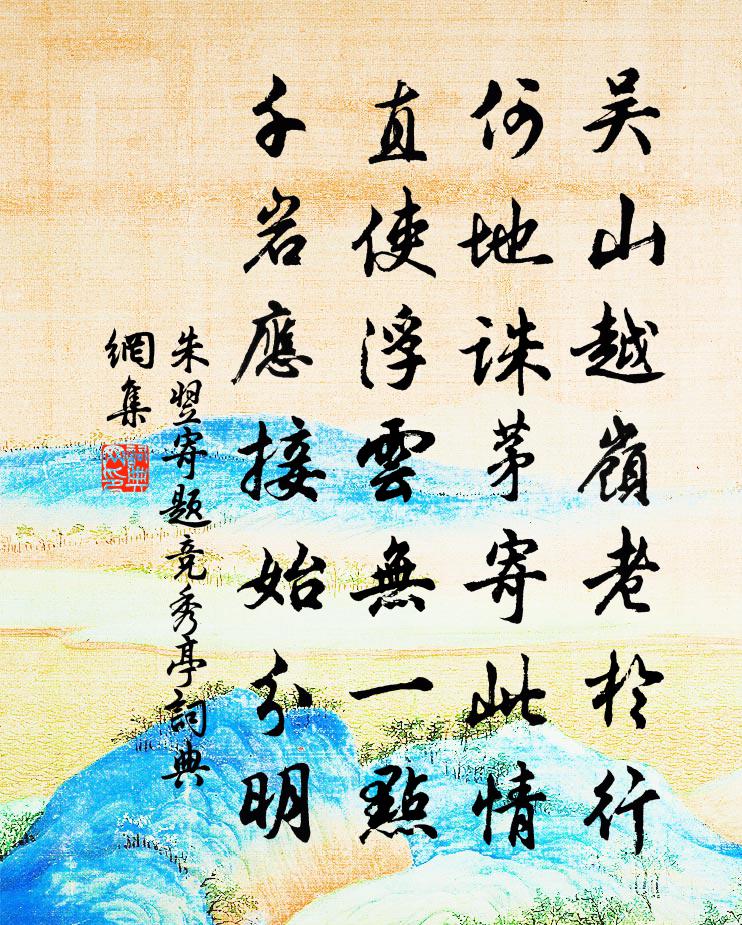 吴山越嶺老於行
何地誅茅寄此情
直使浮雲無一點
千岩應接始分明
朱翌寄题竞秀亭詞典
網集